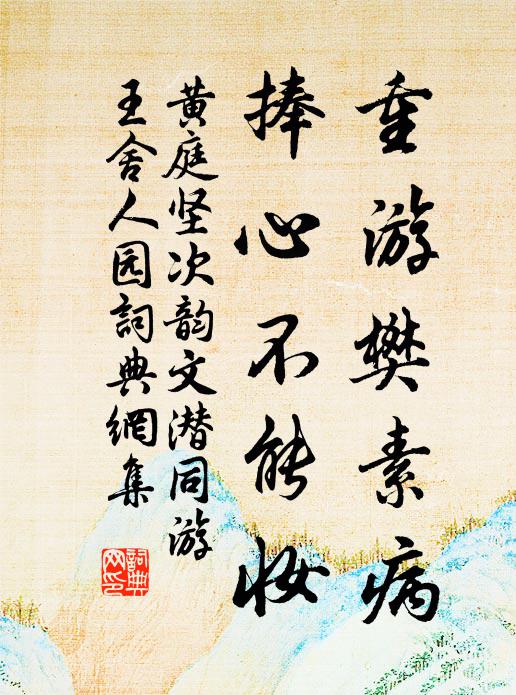 重游樊素病
捧心不能妆
黄庭坚次韵文潜同游
王舍人园詞典網集
詞典
网印